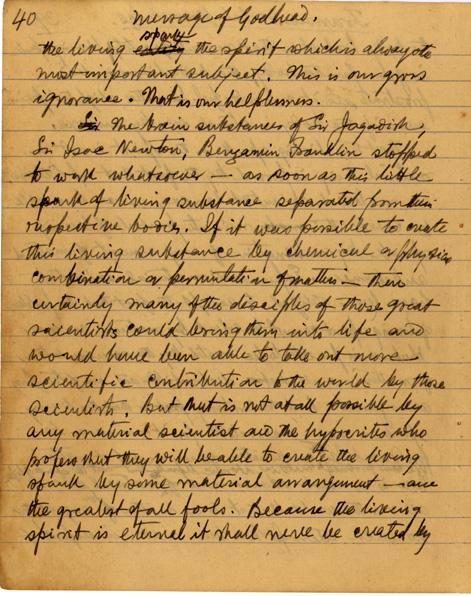 40 message of Godhead.
spark
the living entity the spirit which is always the
most important subject. This is our gross
ignorance. That is our helplessness.
Sir The brain substances of Sir Jagadish,
Sir Isac Newton, Benjamin Franklin stopped
to work whatsoever — as soon as this little
spark of living substance separated from their
respective bodies. If it was possible to create
this living substance by chemical or physical
combination or permutation of matter — then
certainly many of the disciples of those great
scientists could bring them into life and
would have been able to take out more
scientific contribution to the world by those
scientists. But that is not at all possible by
any material scientist and the hypocrites who
profess that they will be able to create the living
spark by some material arrangement — are
the greatest of all fools. Because the living
spirit is eternal it shall never be created by